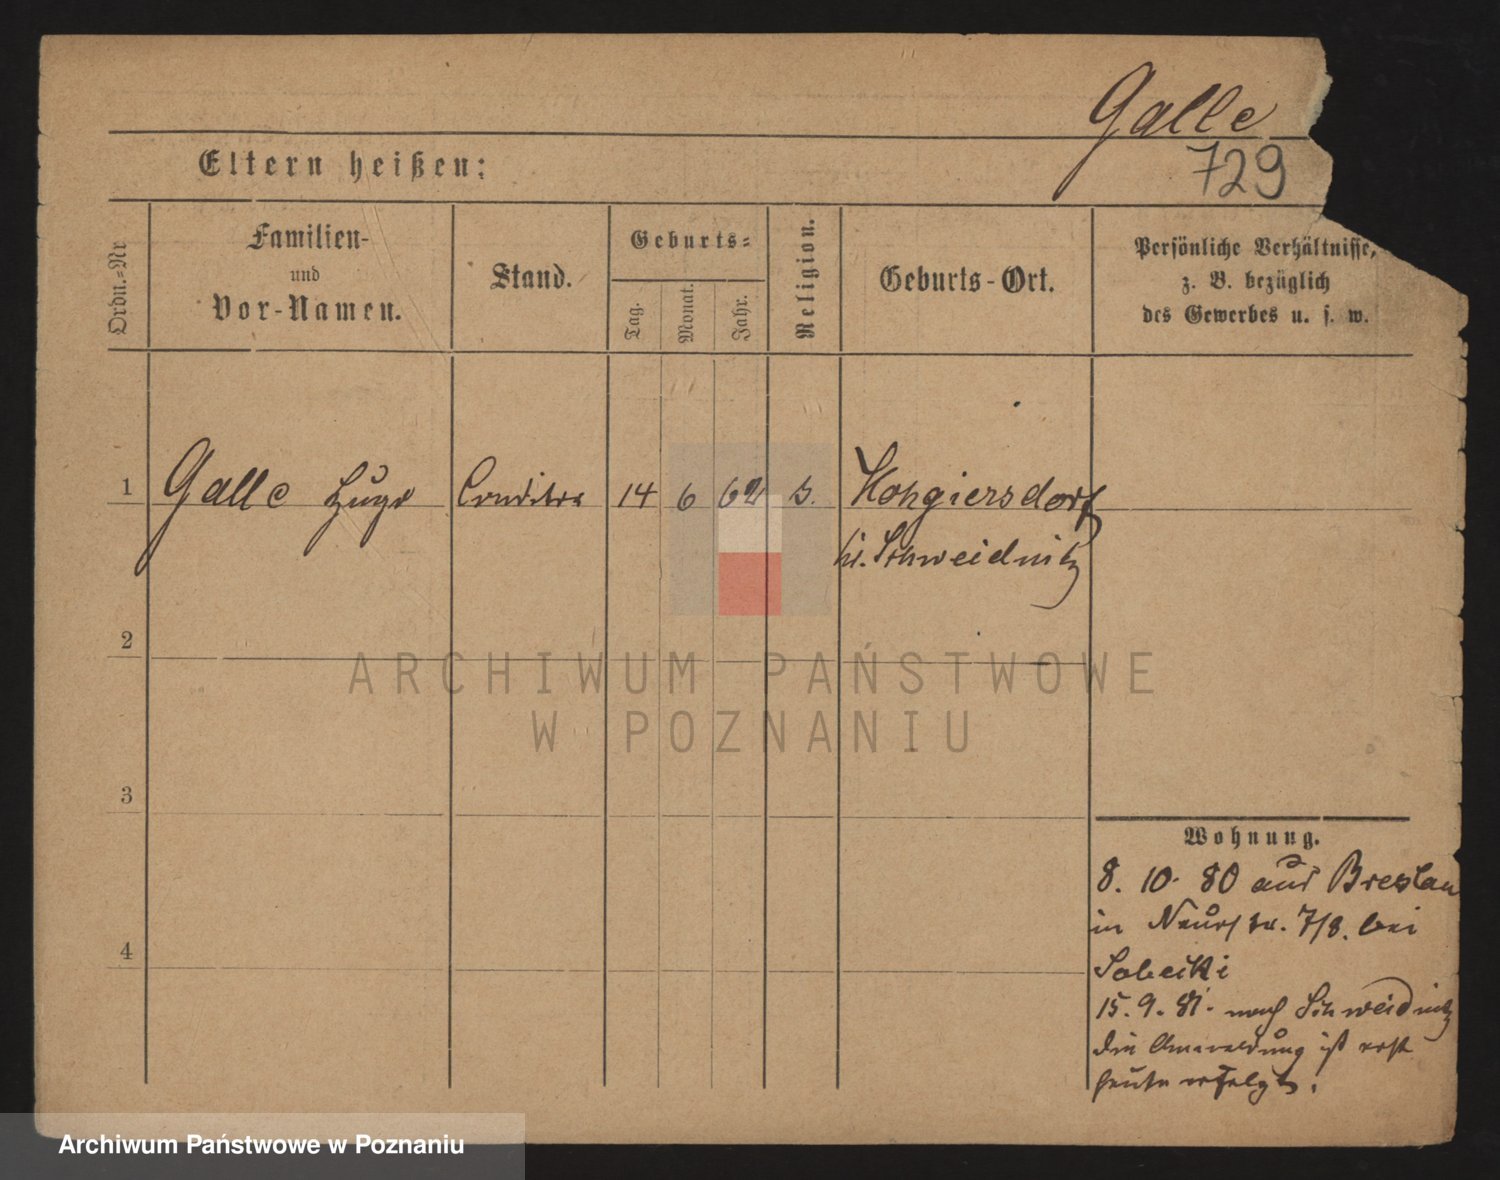 Galle
729
Eltern heißen:
Ordn.-Nr
Familien-
und
Vor-Namen.
Stand.
Geburts-
Tag.
Monat.
Jahr.
Religion.
Geburts-Ort.
Persönliche Verhältnisse,
z. B. bezüglich
des Gewerbes u. s. w.
1 Galle Hugo Conditor 14 6 62 Hohgiersdorf
Schweidnitz
2
3
4
Wohnung.
8. 10. 80 aus Breslau
in Neuestr. 7/8. bei
Sobecki
15. 9. 81. nach Schweidnitz
die Anmeldung ist erst
heute erfolgt.
ARCHIWUM PAŃSTWOWE
W POZNANIU
Archiwum Państwowe w Poznaniu